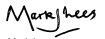 Mark Lees